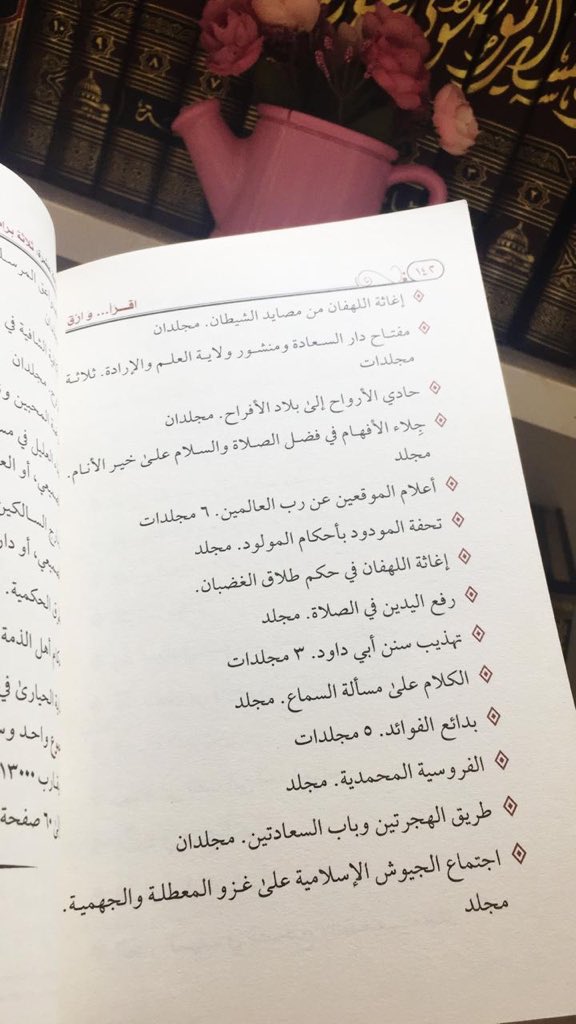 ١٤٢
اقرأ... وارْقَ
إغاثة اللهفان من مصايد الشيطان. مجلدان
مفتاح دار السعادة ومنشور ولاية العلم والإرادة. ثلاثة
مجلدات
حادي الأرواح إلىٰ بلاد الأفراح. مجلدان
جِلاء الأفهام في فضل الصلاة والسلام علىٰ خير الأنام.
مجلد
أعلام الموقعين عن رب العالمين. ٦ مجلدات
تحفة المودود بأحكام المولود. مجلد
إغاثة اللهفان في حكم طلاق الغضبان.
رفع اليدين في الصلاة. مجلد
تهذيب سنن أبي داود. ٣ مجلدات
الكلام علىٰ مسألة السماع. مجلد
بدائع الفوائد. ٥ مجلدات
الفروسية المحمدية. مجلد
طريق الهجرتين وباب السعادتين. مجلدان
اجتماع الجيوش الإسلامية علىٰ غزو المعطلة والجهمية.
مجلد
ثلاثة
الشافية في
مجلدان
المحبين
السالكين
الحكمية.
أهل الذمة
الحيارىٰ في
واحد
١٣٠٠٠
٦٠ صفحة